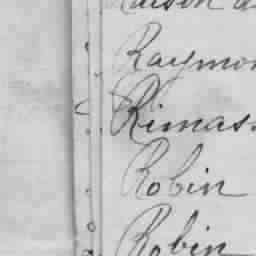 Raymon
Rimass
Robin
Robin